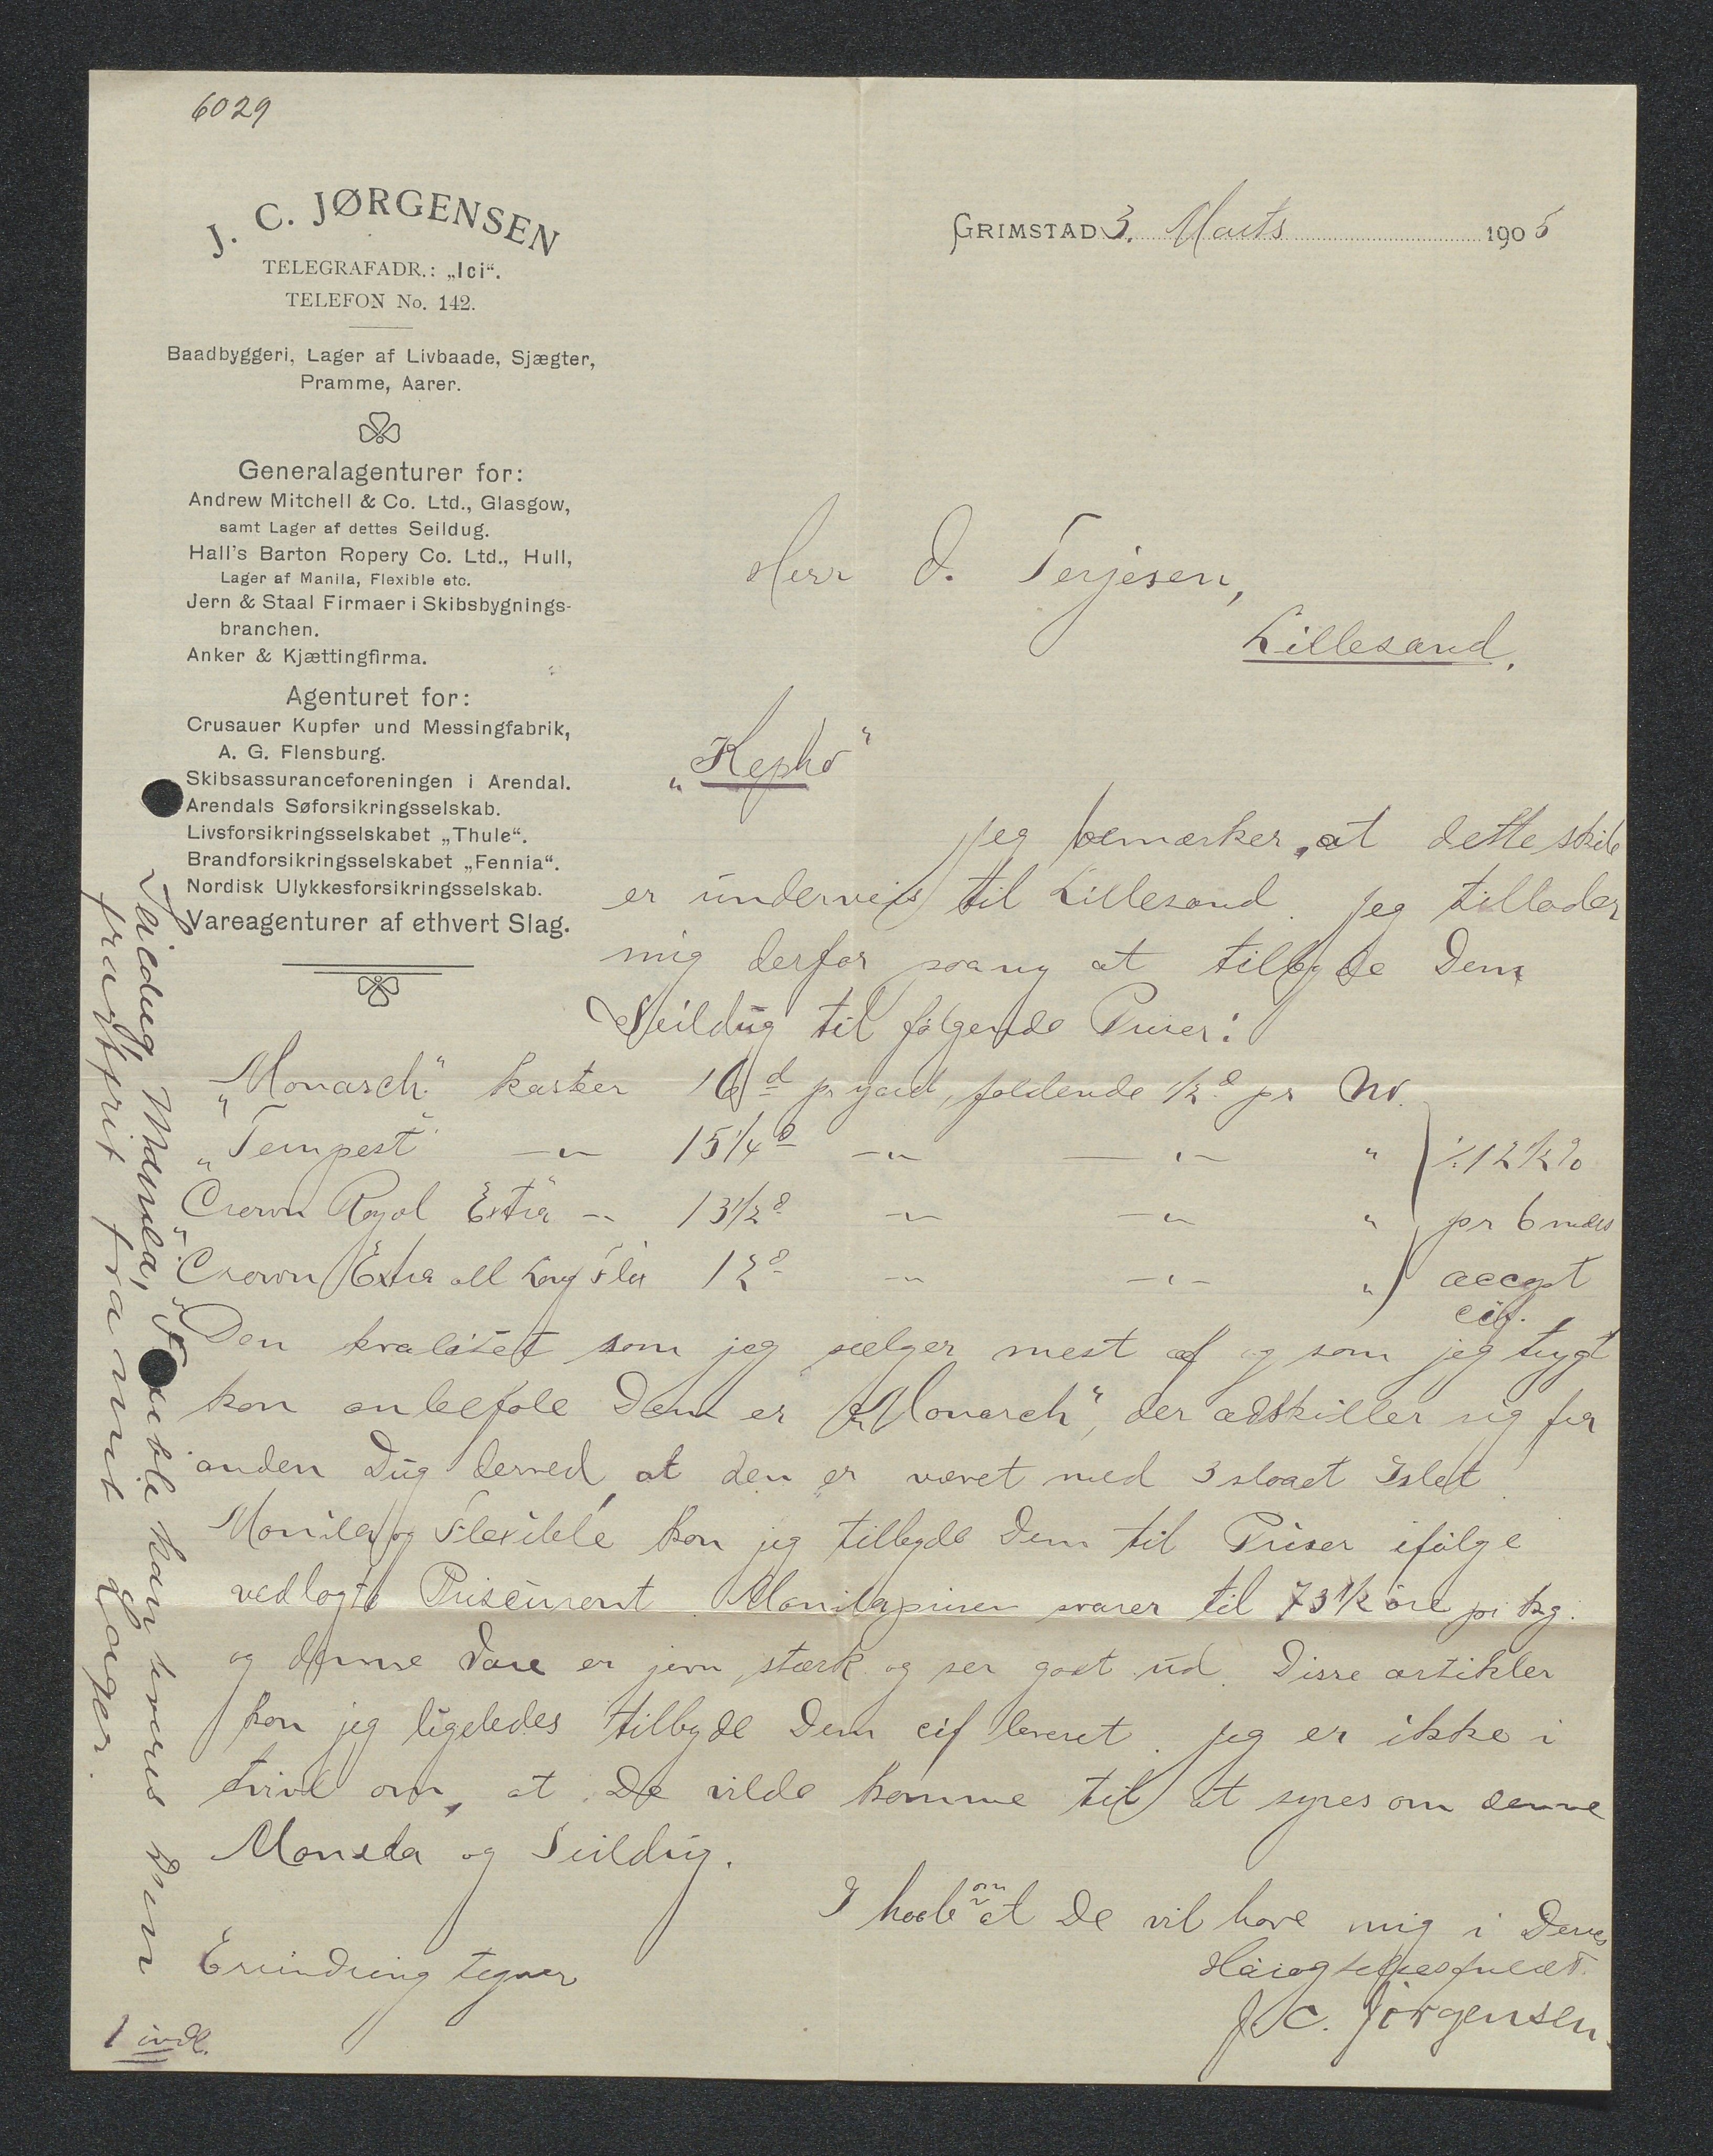 6029
J. C. JØRGENSEN
TELEGRAFADR.: „Ici“.
TELEFON No. 142.
Baadbyggeri, Lager af Livbaade, Sjægter,
Pramme, Aarer.
Generalagenturer for:
Andrew Mitchell & Co. Ltd., Glasgow,
samt Lager af dettes Seildug.
Hall's Barton Ropery Co. Ltd., Hull,
Lager af Manila, Flexible etc.
Jern & Staal Firmaer i Skibsbygnings-
branchen.
Anker & Kjættingfirma.
Agenturet for:
Crusauer Kupfer und Messingfabrik,
A. G. Flensburg.
Skibsassuranceforeningen i Arendal.
Arendals Søforsikringsselskab.
Livsforsikringsselskabet „Thule“.
Brandforsikringsselskabet „Fennia“.
Nordisk Ulykkesforsikringsselskab.
Vareagenturer af ethvert Slag.
GRIMSTAD 3. Marts 1905
Herr O. Terjesen,
Lillesand.
„Hepho“
Jeg bemærker, at dette skib
er underveis til Lillesand. Jeg tillader
mig derfor paany at tilbyde Dem
Seildug til følgende Priser:
„Monarch“ koster 16d pr yard, faldende 1/2d pr No.
„Tempest“ -„- 15 1/4d -„- -„- „
Crown Royal Extra -„- 13 1/2d -„- -„- „
„Crown“ Extra all Long Flax 12d -„- -„- „
÷ 12 1/2 %
pr 6 mds
accept
cif.
Den kvalitet som jeg sælger mest af og som jeg trygt
kan anbefale Dem er „Monarch“, der adskiller sig fra
anden Dug derved, at den er vævet med 3 slaaet Islet
Manila og Flexible kan jeg tilbyde Dem til Priser ifølge
vedlagte Priscurant. Manilaprisen svarer til 73 1/2 øre pr kg.
og denne Vare er jevn, stærk og ser godt ud. Disse artikler
kan jeg ligeledes tilbyde Dem cif leveret. Jeg er ikke i
tvivl om, at De vilde komme til at synes om denne
Manila og Seildug.
I haab om at De vil have mig i Deres
Erindring tegner
Høiagtelsesfuldt
J. C. Jörgensen.
1 indl.
Seildug, Manila, Flexible kan leveres Dem
fragtfrit fra mit Lager.